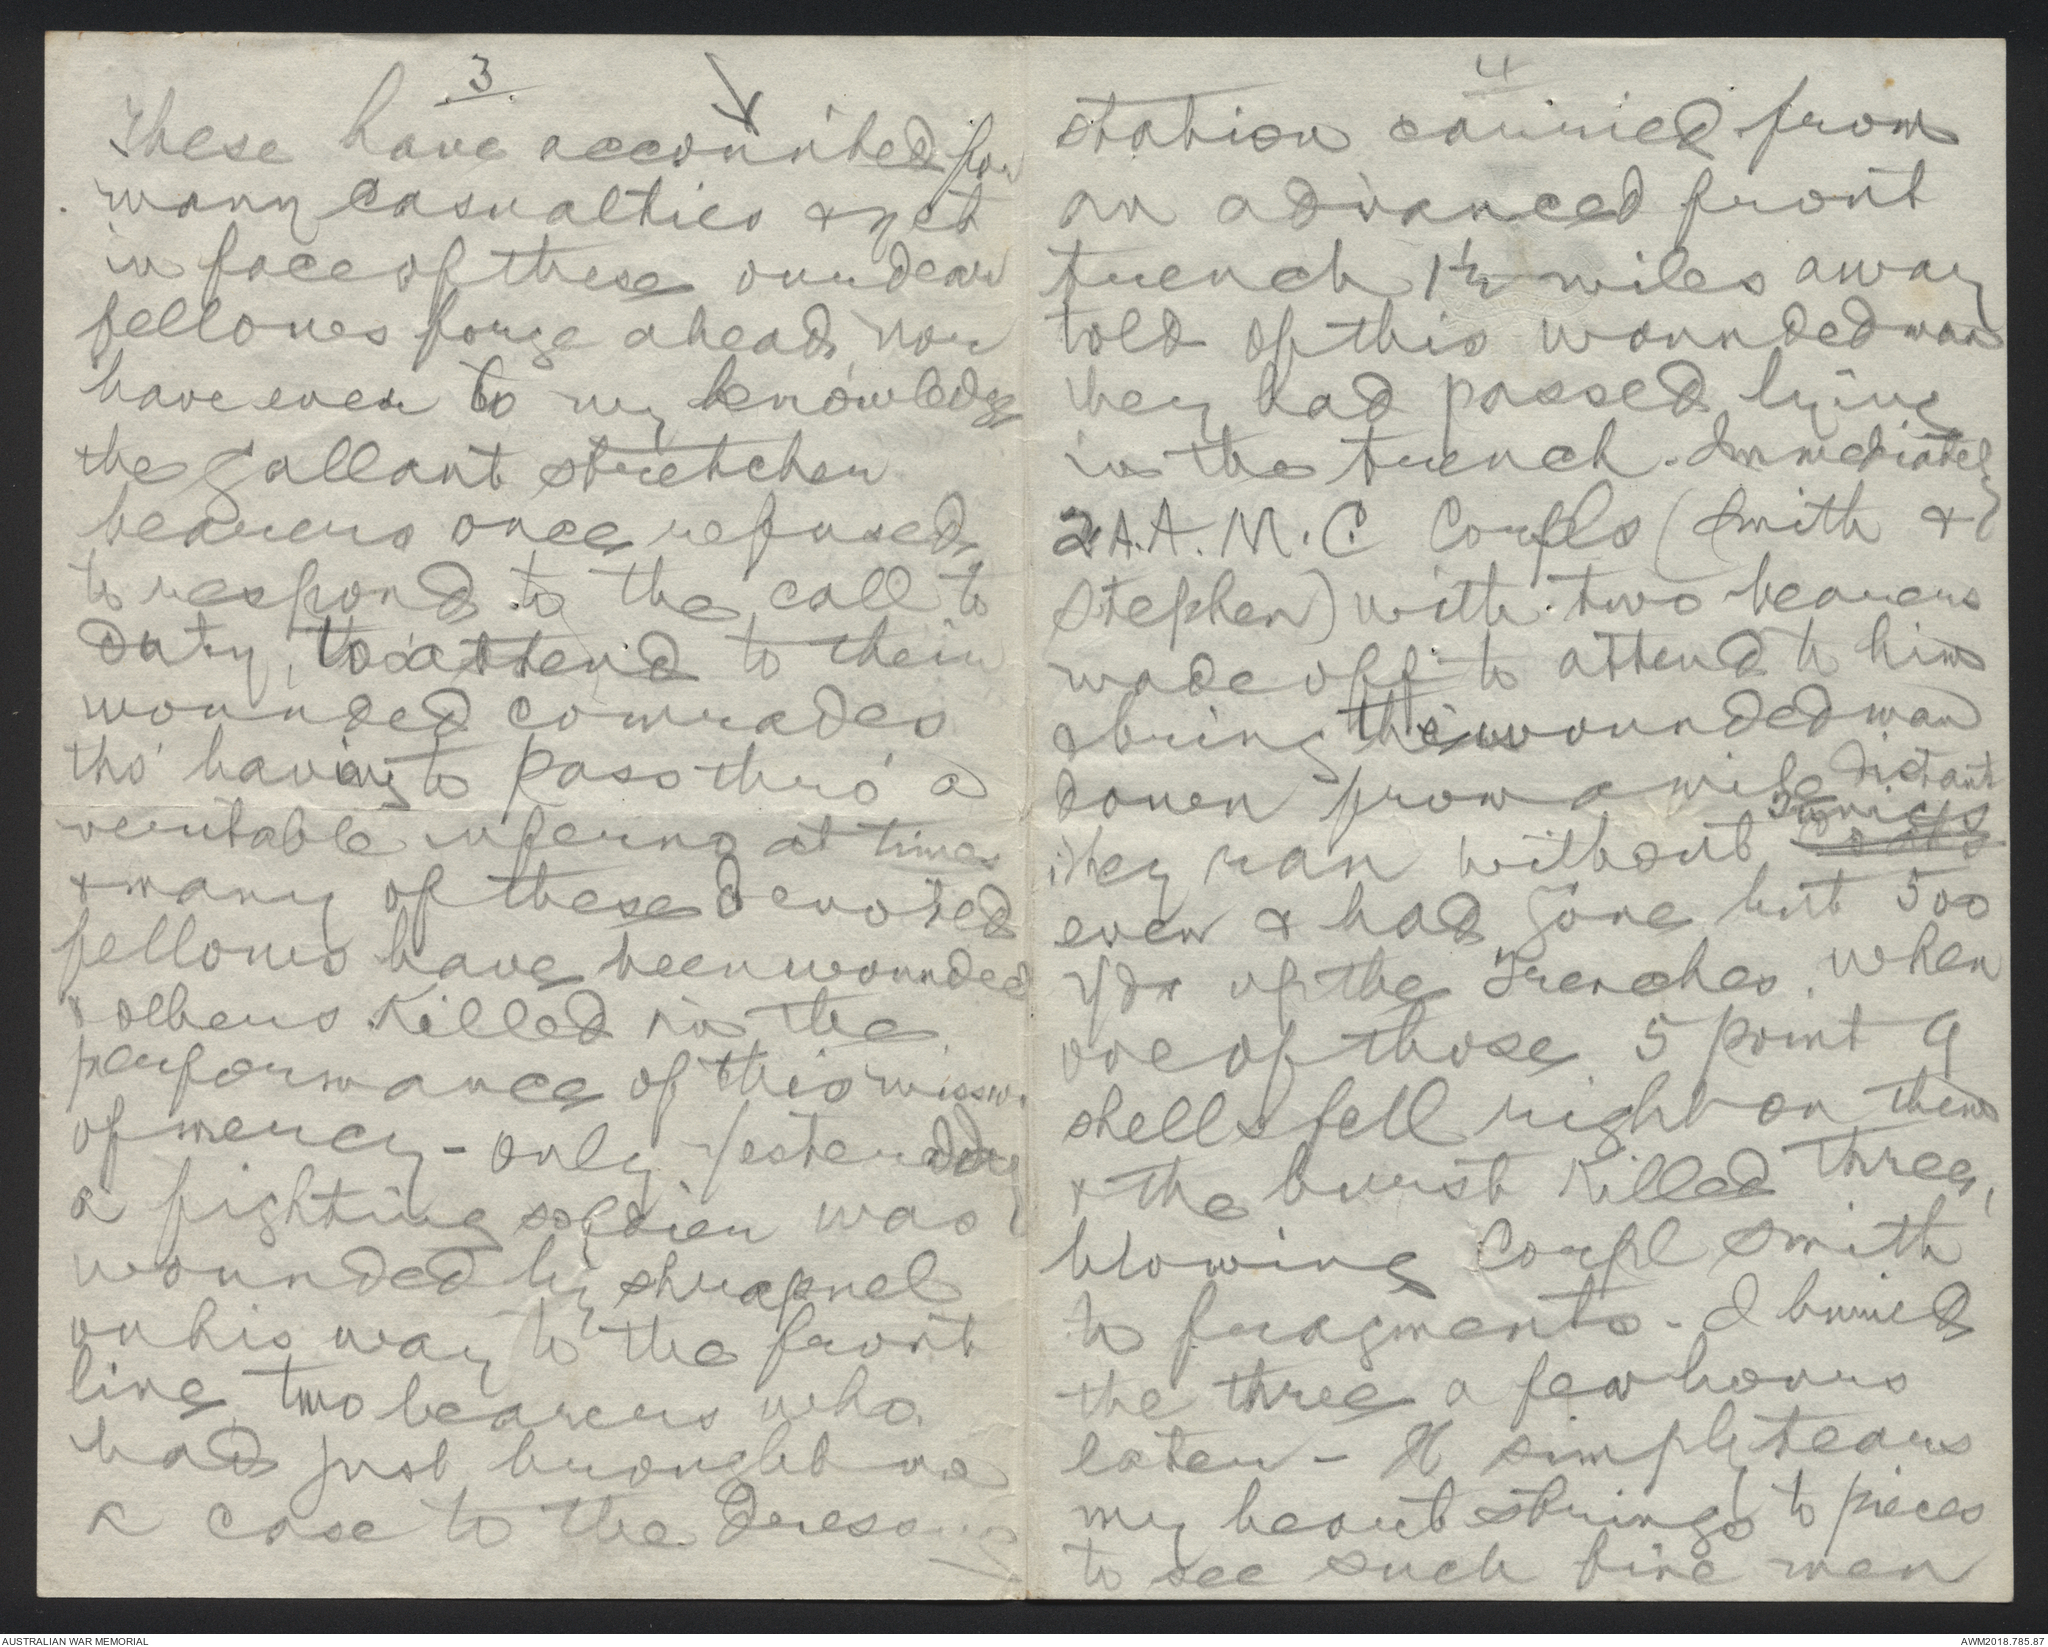 3
These have accounted for
many casualties & yet
in face of these our dear
fellows forge ahead, nor
have ever to my knowledge
the gallant stretcher
bearers once refused,
to respond to the call to
duty, to attend to their
wounded comrades
tho' having to pass thro' a
veritable inferno at times
& many of these devoted
fellows have been wounded
& others killed in the
performance of this mission
of mercy - only yesterday
a fighting soldier was
wounded by shrapnel
on his way to the front
line, two bearers who
had just brought us
a case to the dressing
4
station carried from
an advanced front
trench 1½ miles away
told of this wounded man
they had passed lying
in the trench. Immediately
2 A.A.M.C Corpls (Smith &
Stephen) with two bearers
made off to attend to him
& bring the wounded man
down from a mile distant
They ran without tunics
coats
even & had gone but 500
yds up the trenches, when
one of those 5 point 9
shells fell right on them
& the burst killed three,
blowing Corpl Smith
to fragments - I buried
the three a few hours
later - It simply tears
my heart strings to pieces
to see such fine men
AUSTRALIAN WAR MEMORIAL
AWM2018.785.87